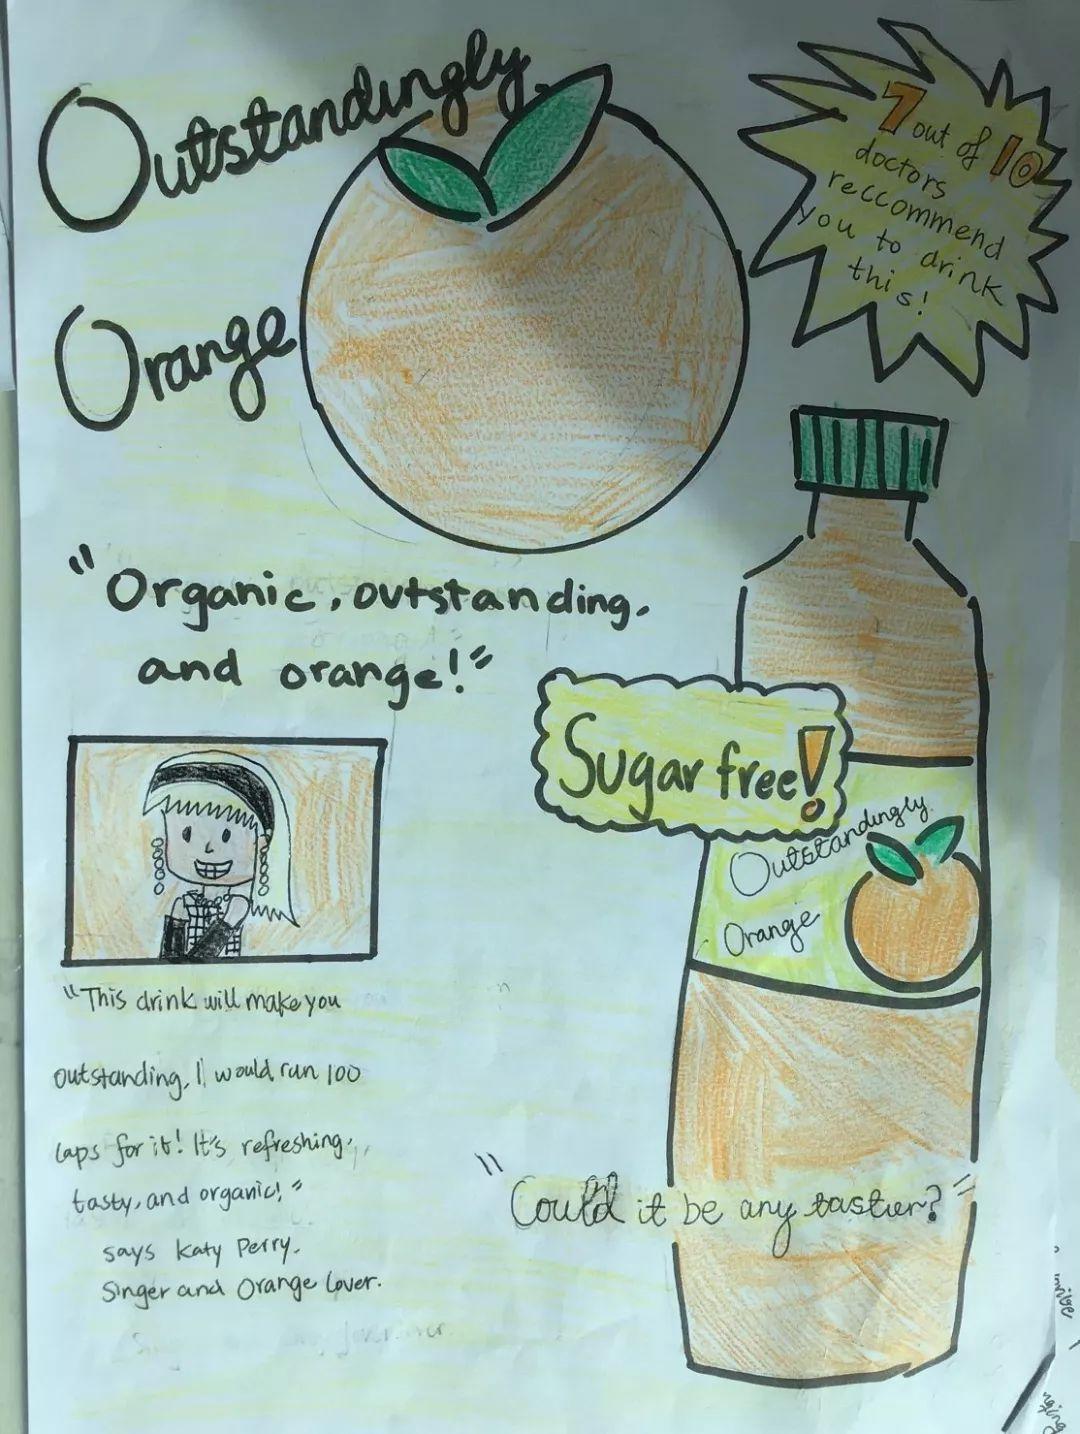 Outstandingly
Orange
7 out of 10
doctors
reccommend
you to drink
this!
"Organic, outstanding,
and orange!"
Sugar free!
Outstandingly
Orange
"This drink will make you
outstanding, I would run 100
laps for it! It's refreshing,
tasty, and organic!"
says Katy Perry,
Singer and Orange Lover.
"Could it be any tastier?"